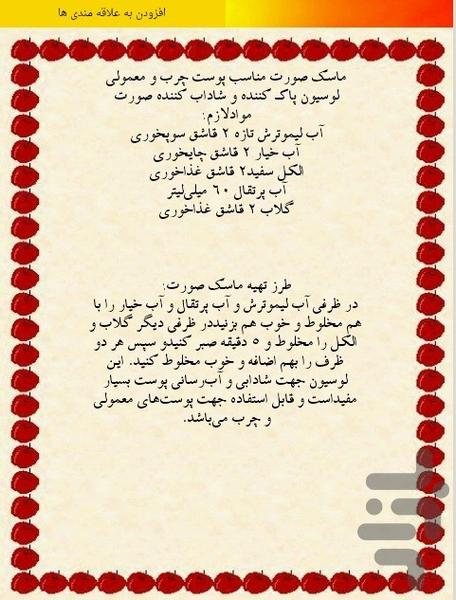 افزودن به علاقه مندی ها
ماسک صورت مناسب پوست چرب و معمولی
لوسیون پاک کننده و شاداب کننده صورت
موادلازم:
آب لیموترش تازه ۲ قاشق سوپخوری
آب خیار ۲ قاشق چایخوری
الکل سفید۲ قاشق غذاخوری
آب پرتقال ۶۰ میلی‌لیتر
گلاب ۲ قاشق غذاخوری
طرز تهیه ماسک صورت:
در ظرفی آب لیموترش و آب پرتقال و آب خیار را با
هم مخلوط و خوب هم بزنیددر ظرفی دیگر گلاب و
الکل را مخلوط و ۵ دقیقه صبر کنیدو سپس هر دو
ظرف را بهم اضافه و خوب مخلوط کنید. این
لوسیون جهت شادابی و آب‌رسانی پوست بسیار
مفیداست و قابل استفاده جهت پوست‌های معمولی
و چرب می‌باشد.
بازار